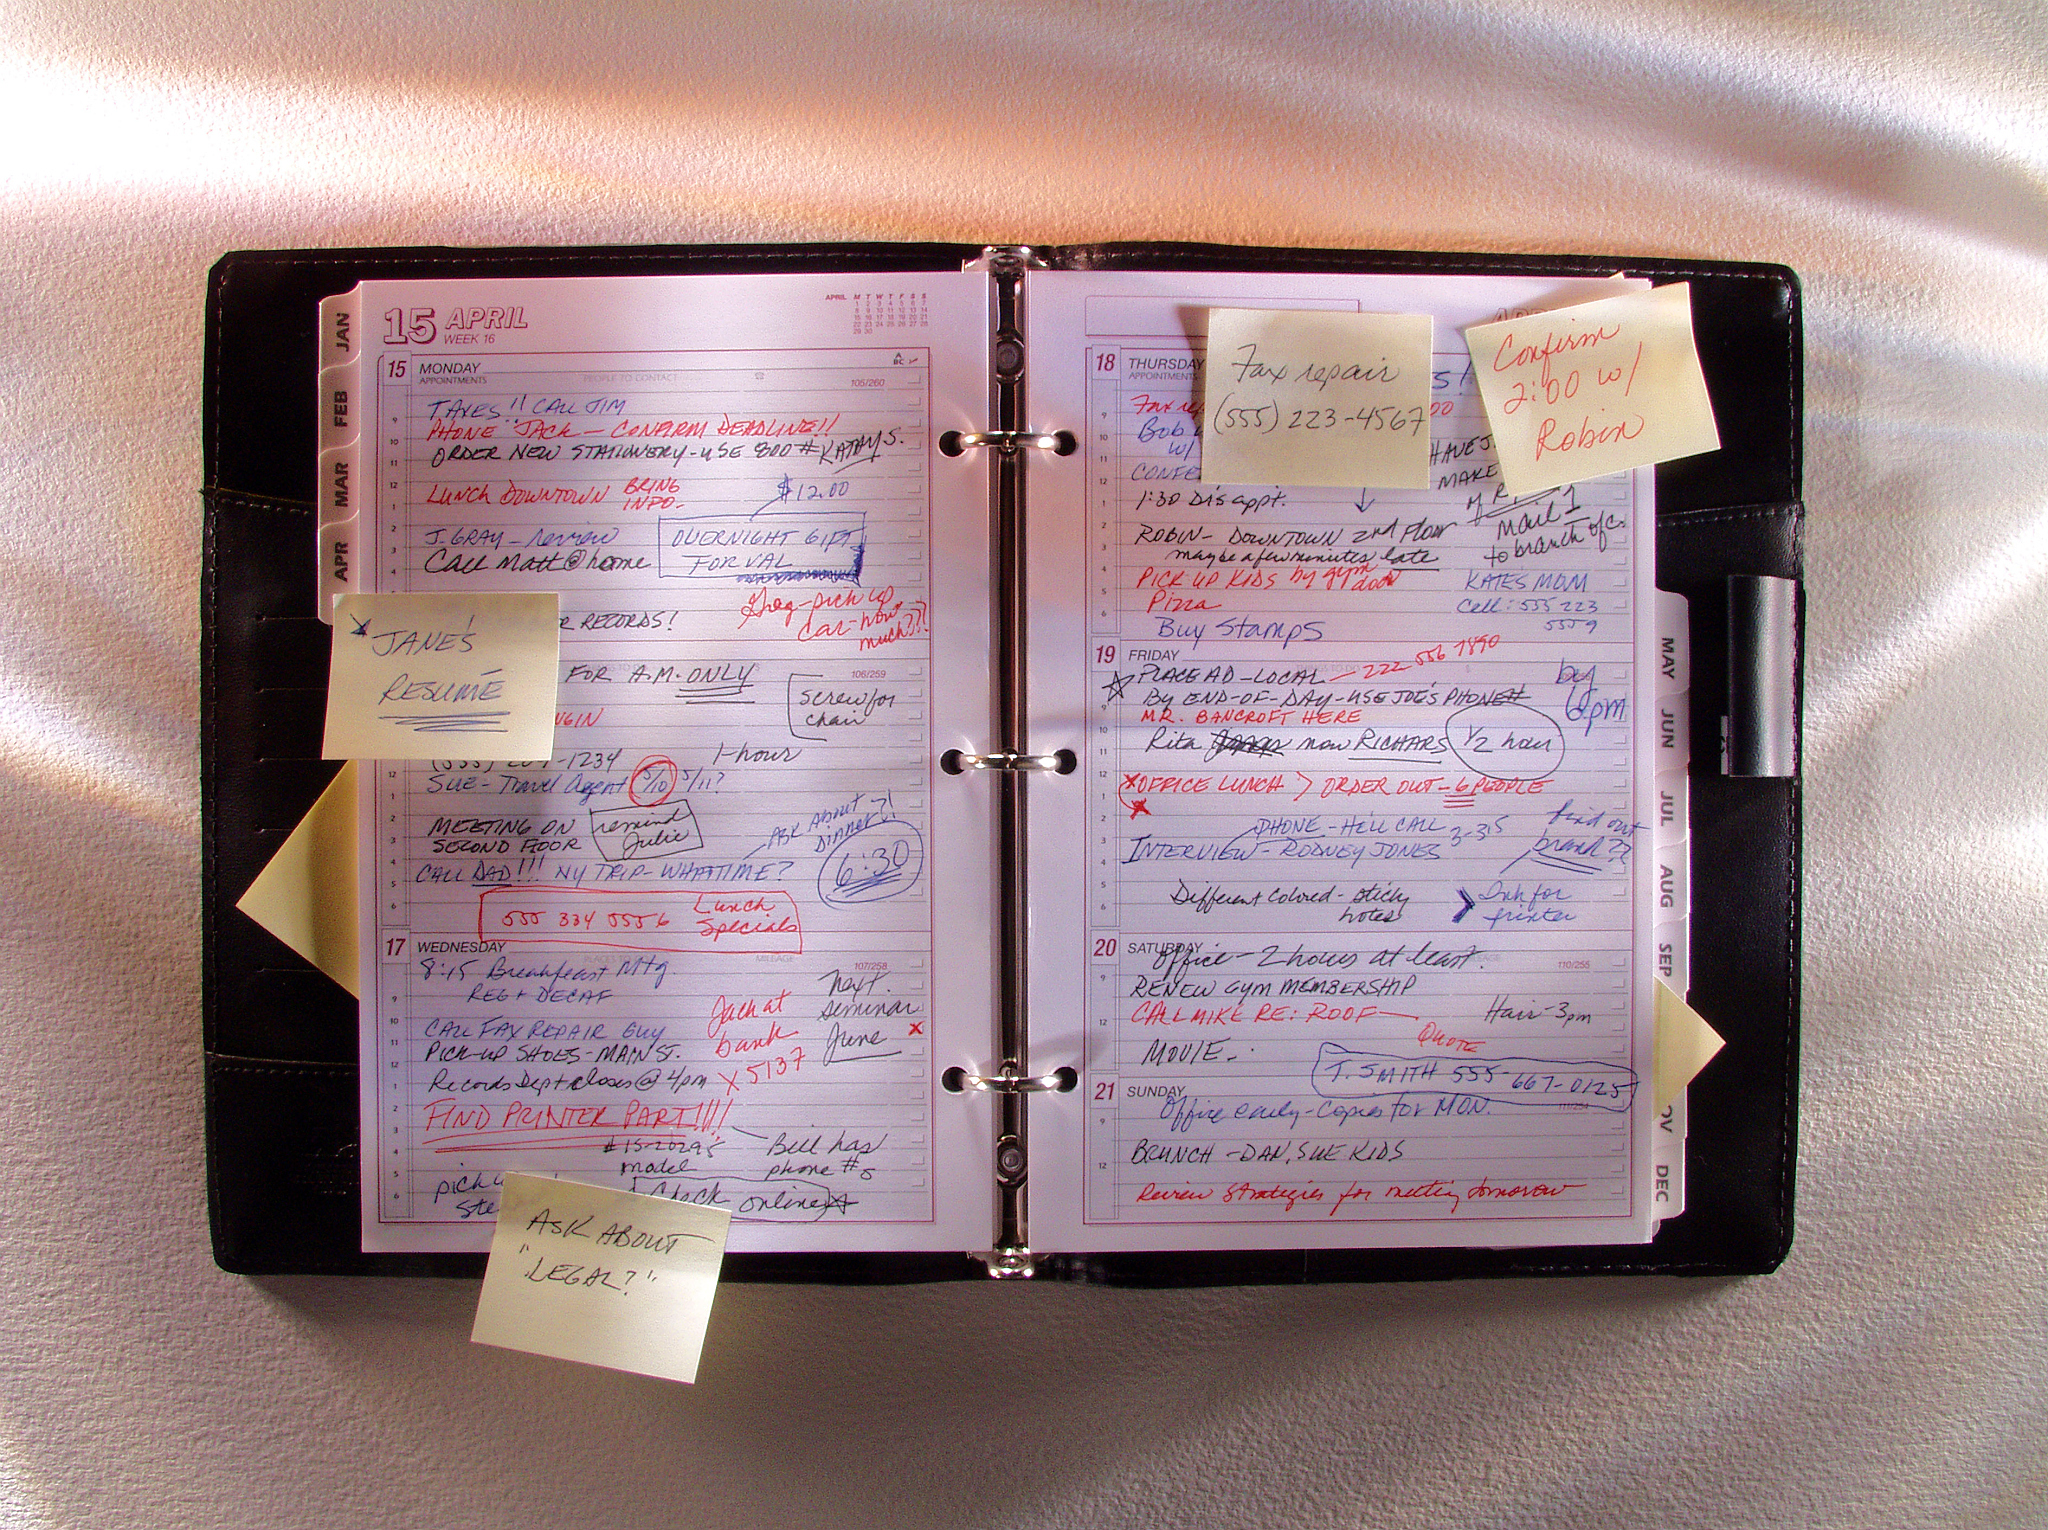 JAN
FEB
MAR
APR
15 APRIL
WEEK 16
APRIL M T W T F S S
15 MONDAY
APPOINTMENTS PEOPLE TO CONTACT
105/260
TAXES!! CALL JIM
PHONE JACK - CONFIRM DEADLINE!!
ORDER NEW STATIONERY - USE 800 # KATHY S.
LUNCH DOWNTOWN BRING INFO-
$12.00
J. GRAY - review
OVERNIGHT GIFT
FOR VAL
Call Matt @ home
Greg - pick up
car - how
much???!
RECORDS!
JANE'S
RESUMÉ
FOR A.M. ONLY
106/259
Screw for
chair
-1234
1-hour
SUE - Travel Agent 5/10 5/11?
MEETING ON
SECOND FLOOR
remind
Julie
ASK ABOUT
Dinner?!
6:30
CALL DAD!!! NY TRIP - WHAT TIME?
555 334 5556 Lunch
Specials
17 WEDNESDAY
MILEAGE
107/258
8:15 Breakfeast Mtg
REG + DECAF
Next
seminar
June
Jack at
bank
X5137
CALL FAX REPAIR GUY
PICK-UP SHOES - MAIN ST.
Records Dept closes @ 4pm
FIND PRINTER PART!!!!
# 15-20295
model
Bill has
phone #s
pick
Ste
Check online
ASK ABOUT
"LEGAL?"
18 THURSDAY
APPOINTMENTS
Fax repair
(555) 223-4567
Confirm
2:00 w/
Robin
Bob
w/
HAVE
MAKE
1:30 Dis appt.
Mail 1
to branch ofc.
ROBIN - DOWNTOWN 2nd Floor
maybe a few minutes late
PICK UP KIDS by gym door
Pizza
KATES MOM
Call: 555 223
5559
Buy Stamps
19 FRIDAY
PLACE AD - LOCAL - 222 556 7890
BY END-OF-DAY - USE JOE'S PHONE#
by
6pm
MR. BANCROFT HERE
Rita now RICHARS
1/2 hour
OFFICE LUNCH > ORDER OUT - 6 PEOPLE
PHONE - HELL CALL
INTERVIEW - RODNEY JONES 3-3:15
find out
brand??
Different Colored - sticky
notes
Ink for
printer
20 SATURDAY
110/255
Office - 2 hours at least.
RENEW GYM MEMBERSHIP
CALL MIKE RE: ROOF - QUOTE
Hair - 3pm
MOVIE -
T. SMITH 555-667-0125
21 SUNDAY
Office early - Copies for MON.
BRUNCH - DAN, SUE KIDS
Review Strategies for meeting tomorrow
MAY
JUN
JUL
AUG
SEP
OV
DEC